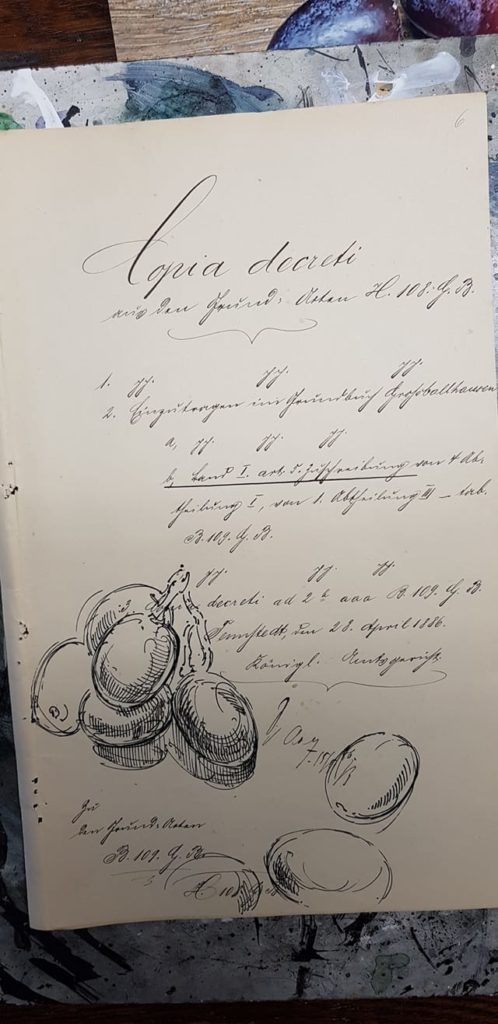 6
Copia decreti
aus den Grund-Acten H. 108. G. B.
1. pp. pp. pp.
2. Einzutragen im Grundbuch Großballhausen
a, pp. pp. pp.
b, Band I. art. 5. Zuschreibung von 4 Ab-
theilung I, von 1. Abtheilung III – tab.
B. 109. G. B.
pp. pp. pp.
decreti ad 2 b aaa B. 109. G. B.
Tennstedt, den 28. April 1886.
Königl. Amtsgericht
Zu
den Grund-Acten
B. 109. G. B.